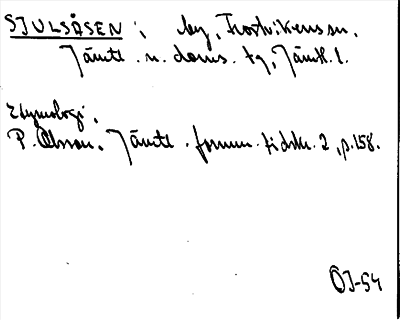 SJULSÅSEN; by, Frostvikens sn,
Jämtl. n. doms. tg, Jämtl. l.
Etymologi,
P. Olsson, Jämtl. fornm. tidskr. 2, p. 158.
ÖJ-54